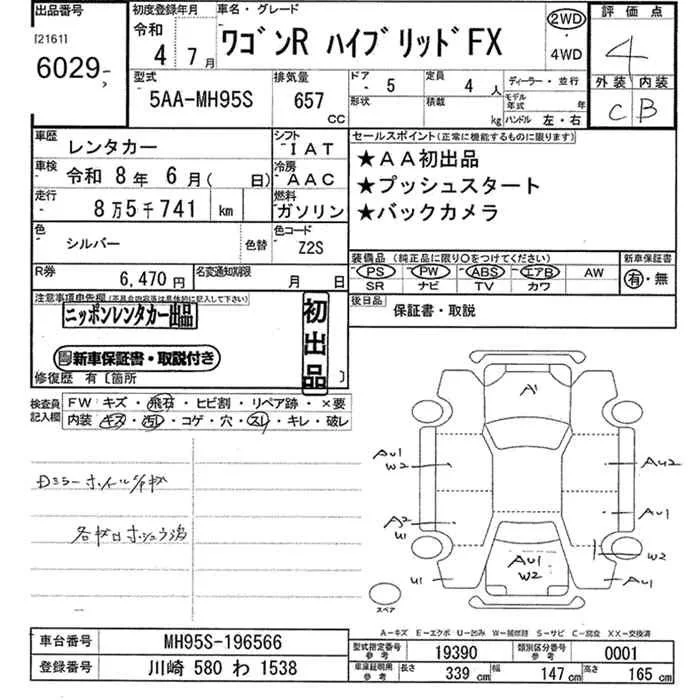 出品番号 初度登録年月 車名・グレード 評価点
[2161] 令和 2WD
6029 4年 7月 ワゴンR ハイブリッドFX ・ 4
4WD
型式 排気量 ドア・5 定員 4人 ディーラー・並行 外装 内装
5AA-MH95S 657 CC 形状 積載 kg モデル年式 年 C B
ハンドル 左・右
車歴 レンタカー シフト IAT セールスポイント(正常に機能するものに限ります)
車検 令和 8年 6月( 日) 冷房 AAC ★AA初出品
走行 8万5千741 km 燃料 ガソリン ★プッシュスタート
★バックカメラ
色 シルバー 色替 色コード Z2S
装備品(純正品に限り○をつけてください) 新車保証書
R券 6,470円 名変通知期限 月 日 PS PW ABS エアB AW 有・無
SR ナビ TV カワ
注意事項申告欄(不具合箇所は具体的に記入して下さい) 後日品 保証書・取説
ニッポンレンタカー出品 初出品
新車保証書・取説付き
修復歴 有〔箇所 〕
検査員記入欄 FW キズ・飛石・ヒビ割・リペア跡・×要
内装 キズ・汚れ・コゲ・穴・スレ・キレ・破レ
A1
AU1 W2 AU2
Dミラーホイールキャ
A2 U1 AU1
W2
U1 AU1 W2 AU1
スペア
A-キズ E-エクボ U-凹み W-補修跡 S-サビ C-腐食 XX-交換済
車台番号 MH95S-196566 型式指定番号 参考 19390 類別区分番号 参考 0001
登録番号 川崎 580 わ 1538 車庫証明用 参考 長さ 339 cm 幅 147 cm 高さ 165 cm